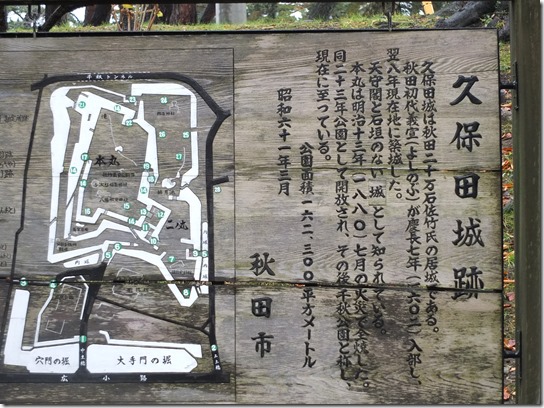 久保田城跡
久保田城は秋田二十万石佐竹氏の居城である。
秋田初代義宣(よしのぶ)が慶長七年(一六〇二)入部し、
翌八年現在地に築城した。
天守閣と石垣のない城として知られている。
本丸は明治十三年(一八八〇)七月の火災で全焼した。
同二十三年公園として開放され、その後千秋公園と称し、
現在に至っている。
公園面積 一六二、三〇〇平方メートル
昭和六十一年三月
秋田市
千秋トンネル
本丸
二の丸
穴門の堀
大手門の堀
広小路